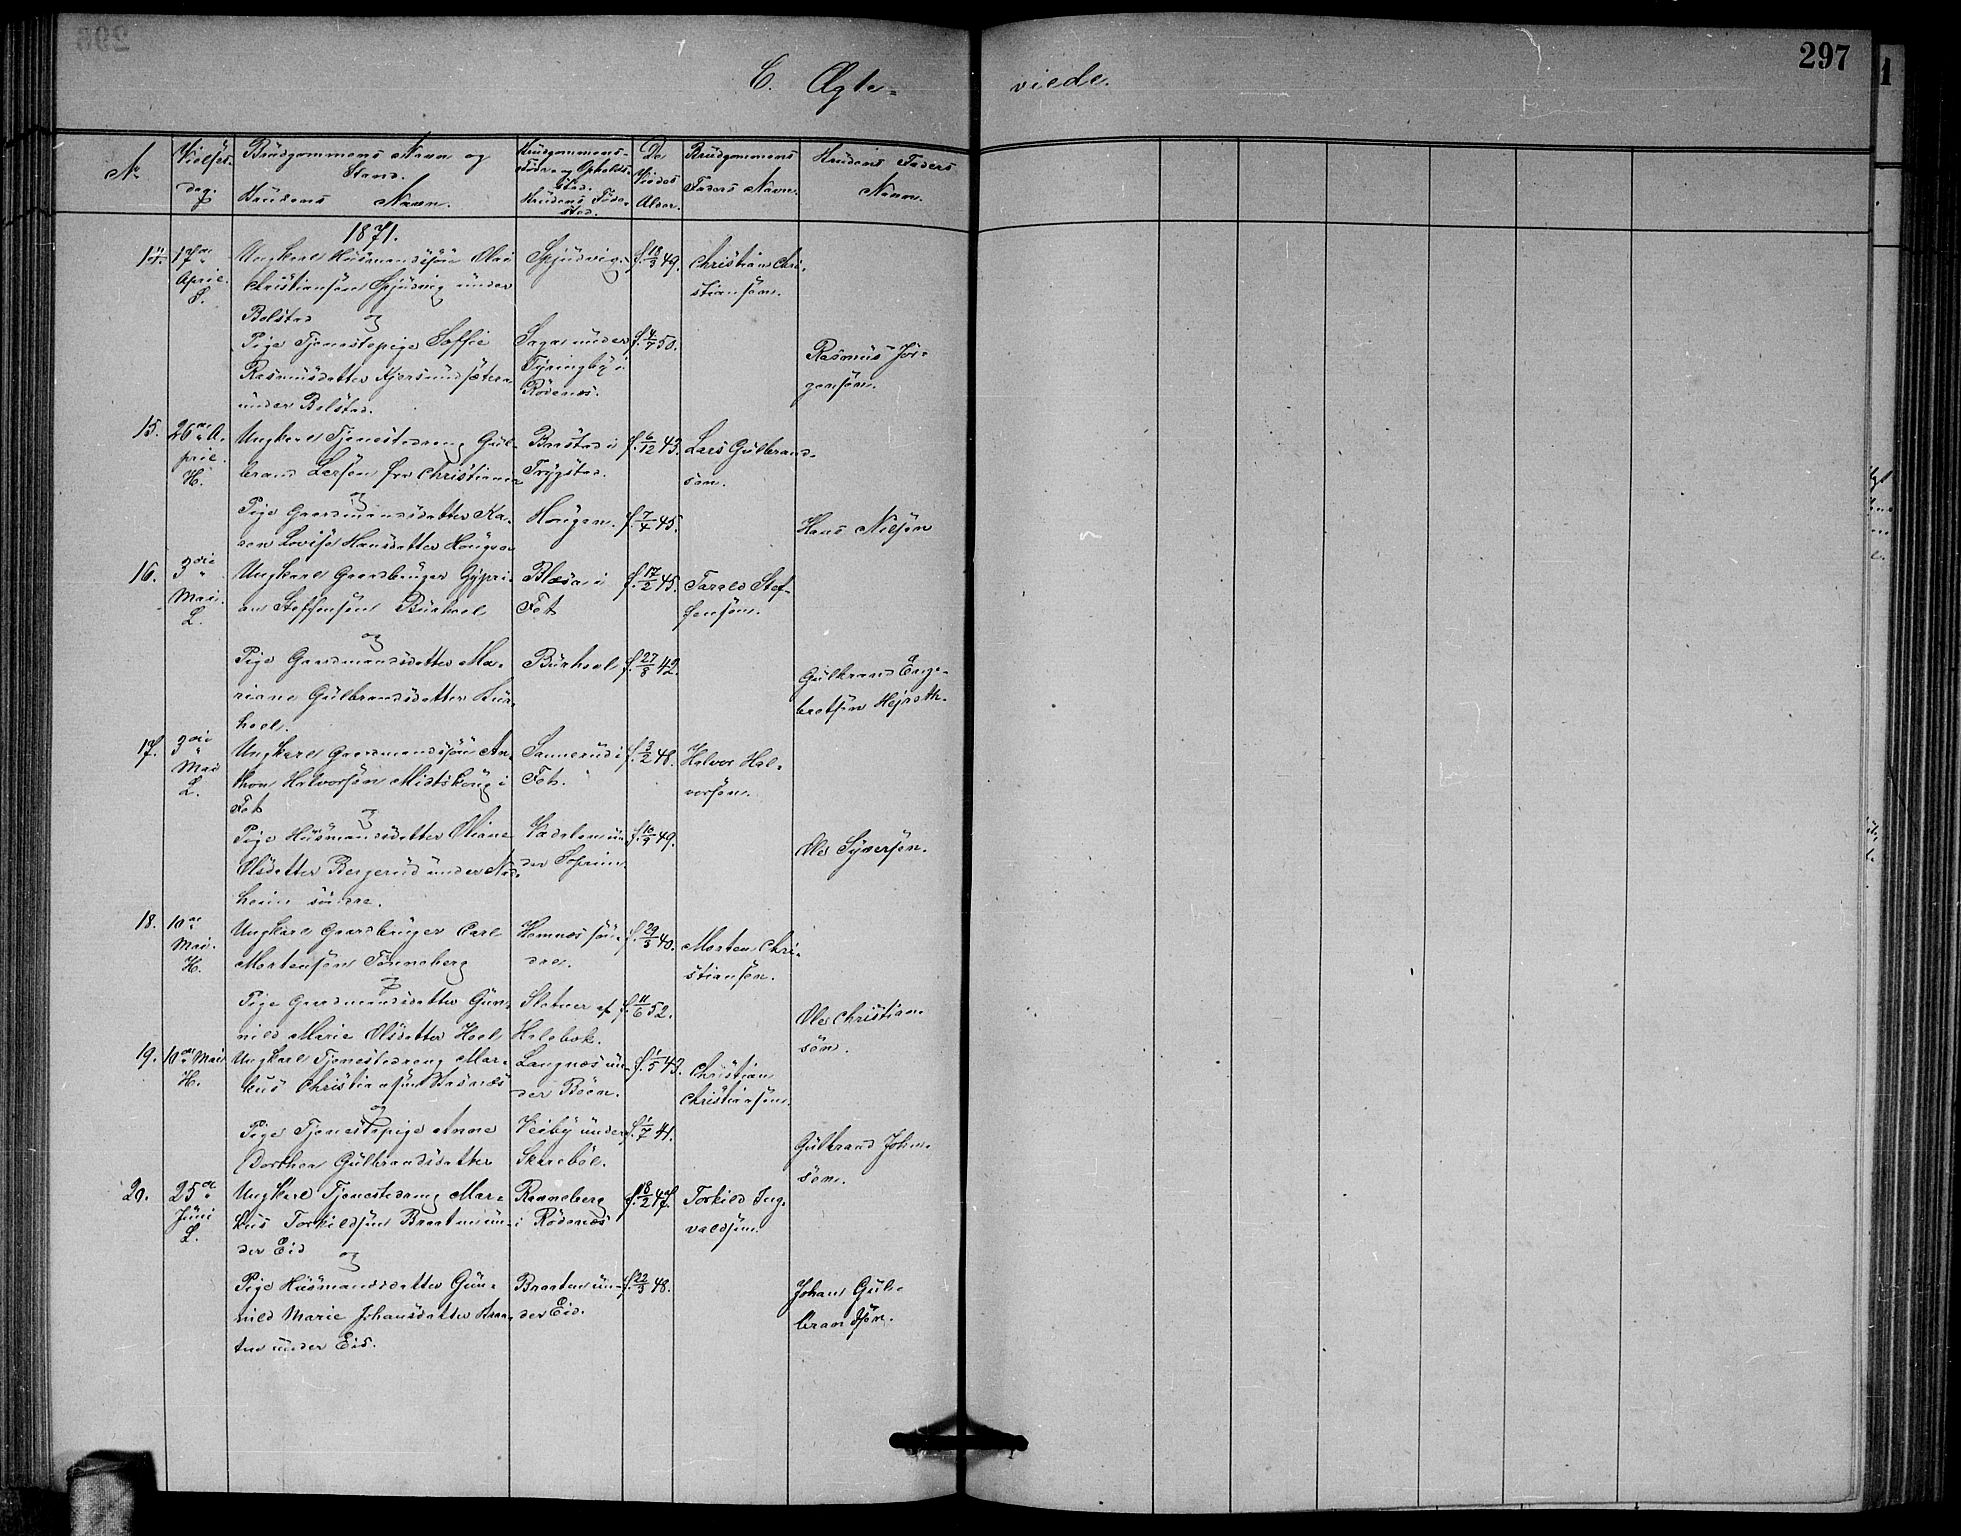 297
C. Ægte-
viede.
No.
Vielses-
dag.
Brudgommens Navn og
Stand.
Brudens Navn.
Brudgommens
Føde og Opholds-
sted.
Brudens Føde-
sted.
De
Viedes
Alder.
Brudgommens
Faders Navn.
Brudens Faders
Navn.
1871.
14. 17de April. Ungkarl Husmandssøn
f. 18/3 49. Christian Chri-
Christiansen Spjudvig under
stiansøn.
Bolstad og
Pige Tjenestepige Soffie
f. 4/7 50.
Rasmus Jør-
gensøn.
Rasmusdatter
under Bolstad.
Rødenæs.
15. 26de A-
pril.
H.
Ungkarl Tjenestedreng Gul-
brand Larsen fra Christiania
og
Brastad i
Trygstad.
f. 6/12 43.
Lars Gulbrand-
søn.
Pige Gaardmandsdatter Ka-
ren Lovise Hansdatter Hougen
Hougen.
f. 7/4 45.
Hans Nilsen
16. 3die
Mai.
L.
Ungkarl Gaardbruger Cypri-
an Steffensen Burhol
og
f. 17/2 45.
Fet
Tarald Stef-
fensøn.
Pige Gaardmandsdatter Ma-
riane Gulbrandsdatter Bur-
hol.
Burhol
f. 27/8 42.
Gulbrand Enge-
bretsen
17. 3die
Mai
L.
Ungkarl Gaardmandssøn An-
thon Halvorsen Midtskoug i
Fet
og
Sannerud i
Fet.
f. 3/2 48.
Halvor Hal-
vorsen.
Pige Husmandsdatter Oliane
Olsdatter Bergerud under
søndre.
f. 10/9 49.
Ole Syversen.
18. 10de
Mai.
H.
Ungkarl Gaardbruger Carl
Mortensen Tønneberg
og
Hemnes søn-
dre.
f. 29/3 40.
Morten Chri-
stiansen.
Pige Gaardmandsdatter Gun-
nild Marie Olsdatter Hoel
f. 11/6 52.
Ole Christian-
søn.
19. 10de Mai
H.
Ungkarl Tjenestedreng Mar-
kus Christiansen
og
Langnæs un-
der Bøen.
f. 1/5 43.
Christian
Christiansen.
Pige Tjenestepige Anne
Dorthea Gulbrandsdatter
Veiby under
f. 1/7 41.
Gulbrand Johan-
søn.
20. 25de
Juni
L.
Ungkarl Tjenestedreng Mar-
kus Torkildsen Braaten un-
der Eid
og
Ranneberg
i Rødenæs
f. 18/2 47.
Torkild Ing-
valdsen.
Pige Husmandsdatter Gun-
nild Marie Johansdatter Braa-
ten under Eid.
Braaten un-
der Eid.
f. 22/3 48.
Johan Gul-
brandsøn.